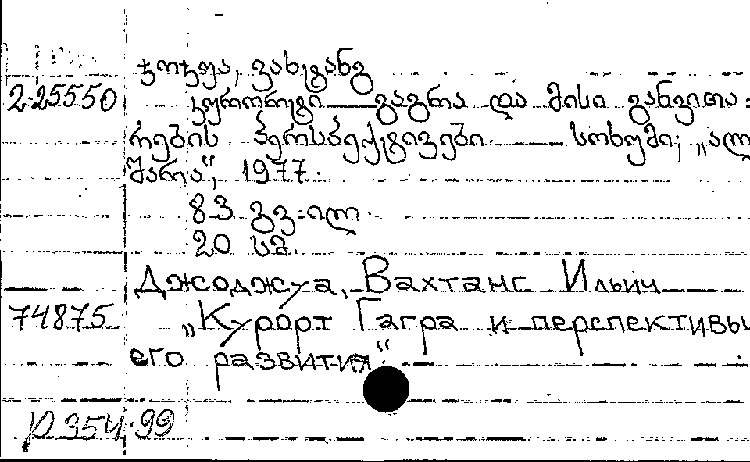 ჯოჯუა, ვახტანგ
2-25550 კურორტი გაგრა და მისი განვითა-
რების პერსპექტივები სოხუმი, „ალ
შარა“, 1977.
83 გვ. ილ.
20 სმ.
Джоджуа, Вахтанг Ильич
74875 „Курорт Гагра и перспективы
его развития“
99